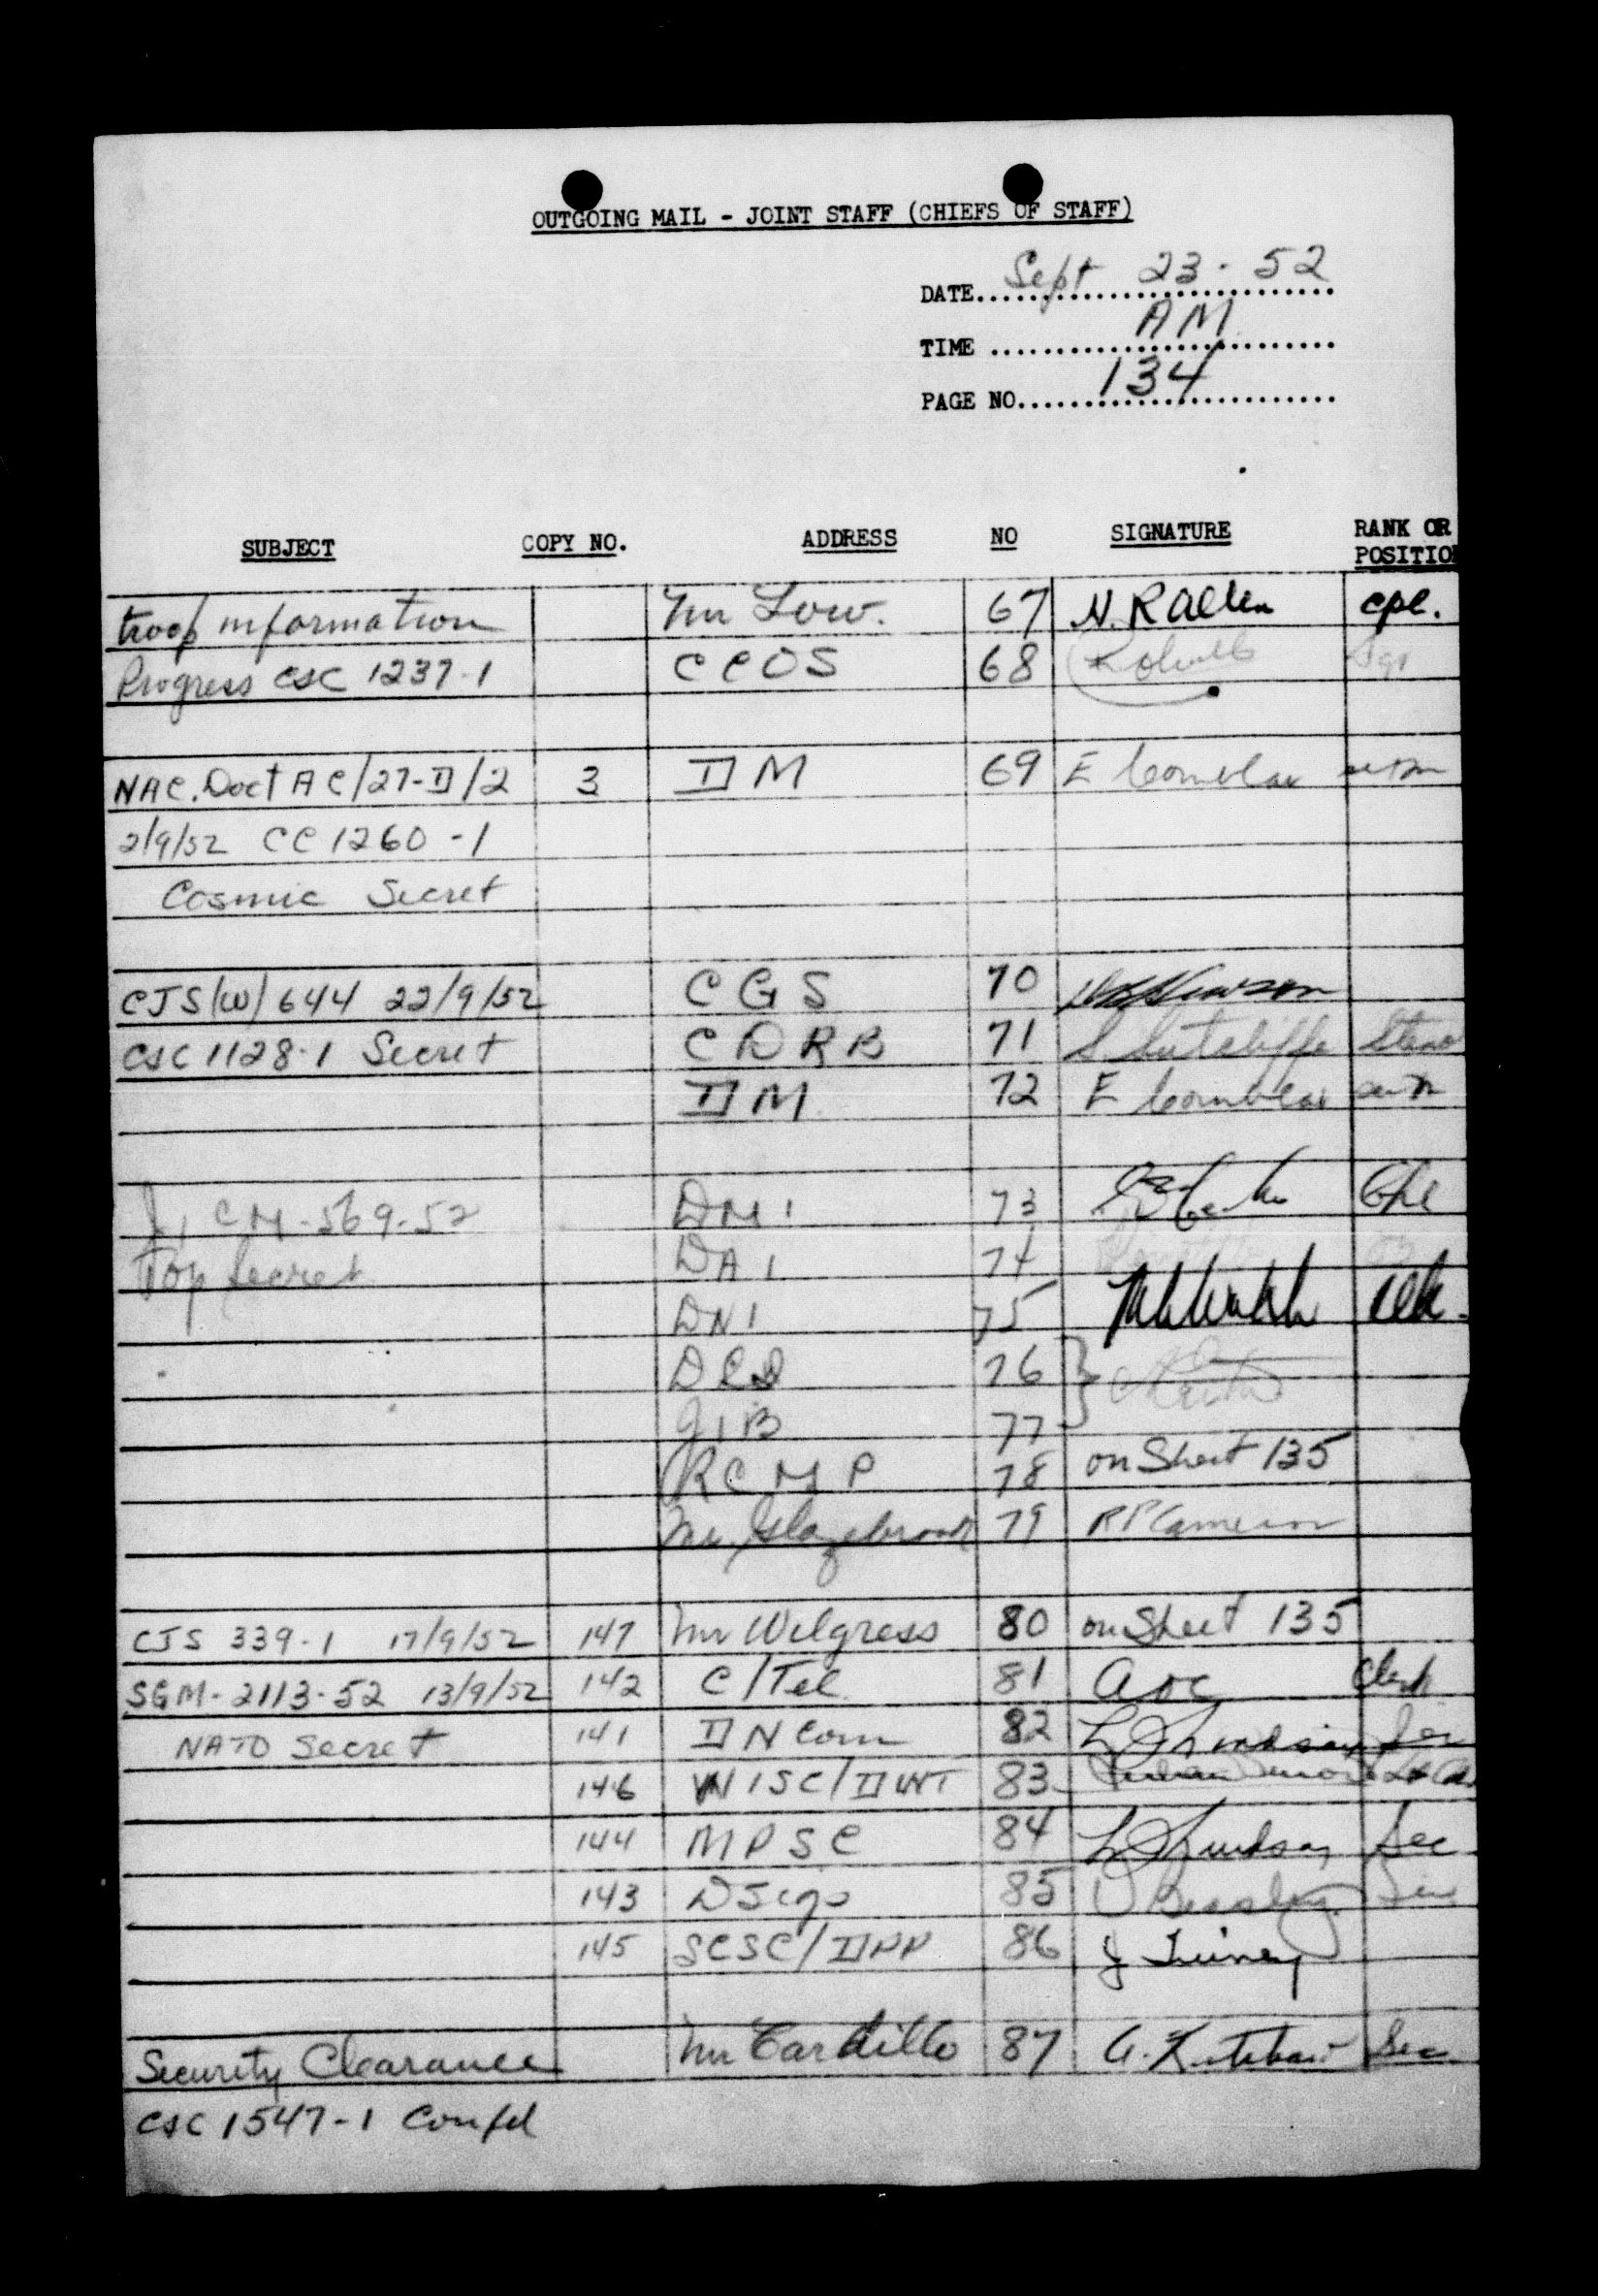 OUTGOING MAIL - JOINT STAFF (CHIEFS OF STAFF)
DATE Sept 23. 52
TIME AM
PAGE NO. 134
SUBJECT COPY NO. ADDRESS NO SIGNATURE RANK OR POSITION
troop information Mr Low. 67 N. R Allen Cpl.
Progress CSC 1237-1 CCOS 68
NAC. Doct AC/27-D/2 3 DM 69 E
2/9/52 CC 1260-1
Cosmic Secret
CJS(W) 644 22/9/52 CGS 70
CSC 1128-1 Secret CDRB 71 S. Sutcliffe Steno
DM 72 E
CM-569-52 DMI 73 Cpl
Top Secret DAI 74
DNI 75
76
JIB 77
RCMP 78 on Sheet 135
Mr. Glazebrook 79 R P Cameron
CJS 339-1 17/9/52 147 Mr Wilgress 80 on Sheet 135
SGM-2113-52 13/9/52 142 C/Tel 81 Clerk
NATO Secret 141 DN Com 82 L Lindsay Sec
146 WISC/DWT 83
144 MPSC 84 L Lindsay Sec
143 DSigs 85 Beasley
145 SCSC/DPP 86 J
Security Clearance Mr Cardillo 87 Sec.
CSC 1547-1 Confd